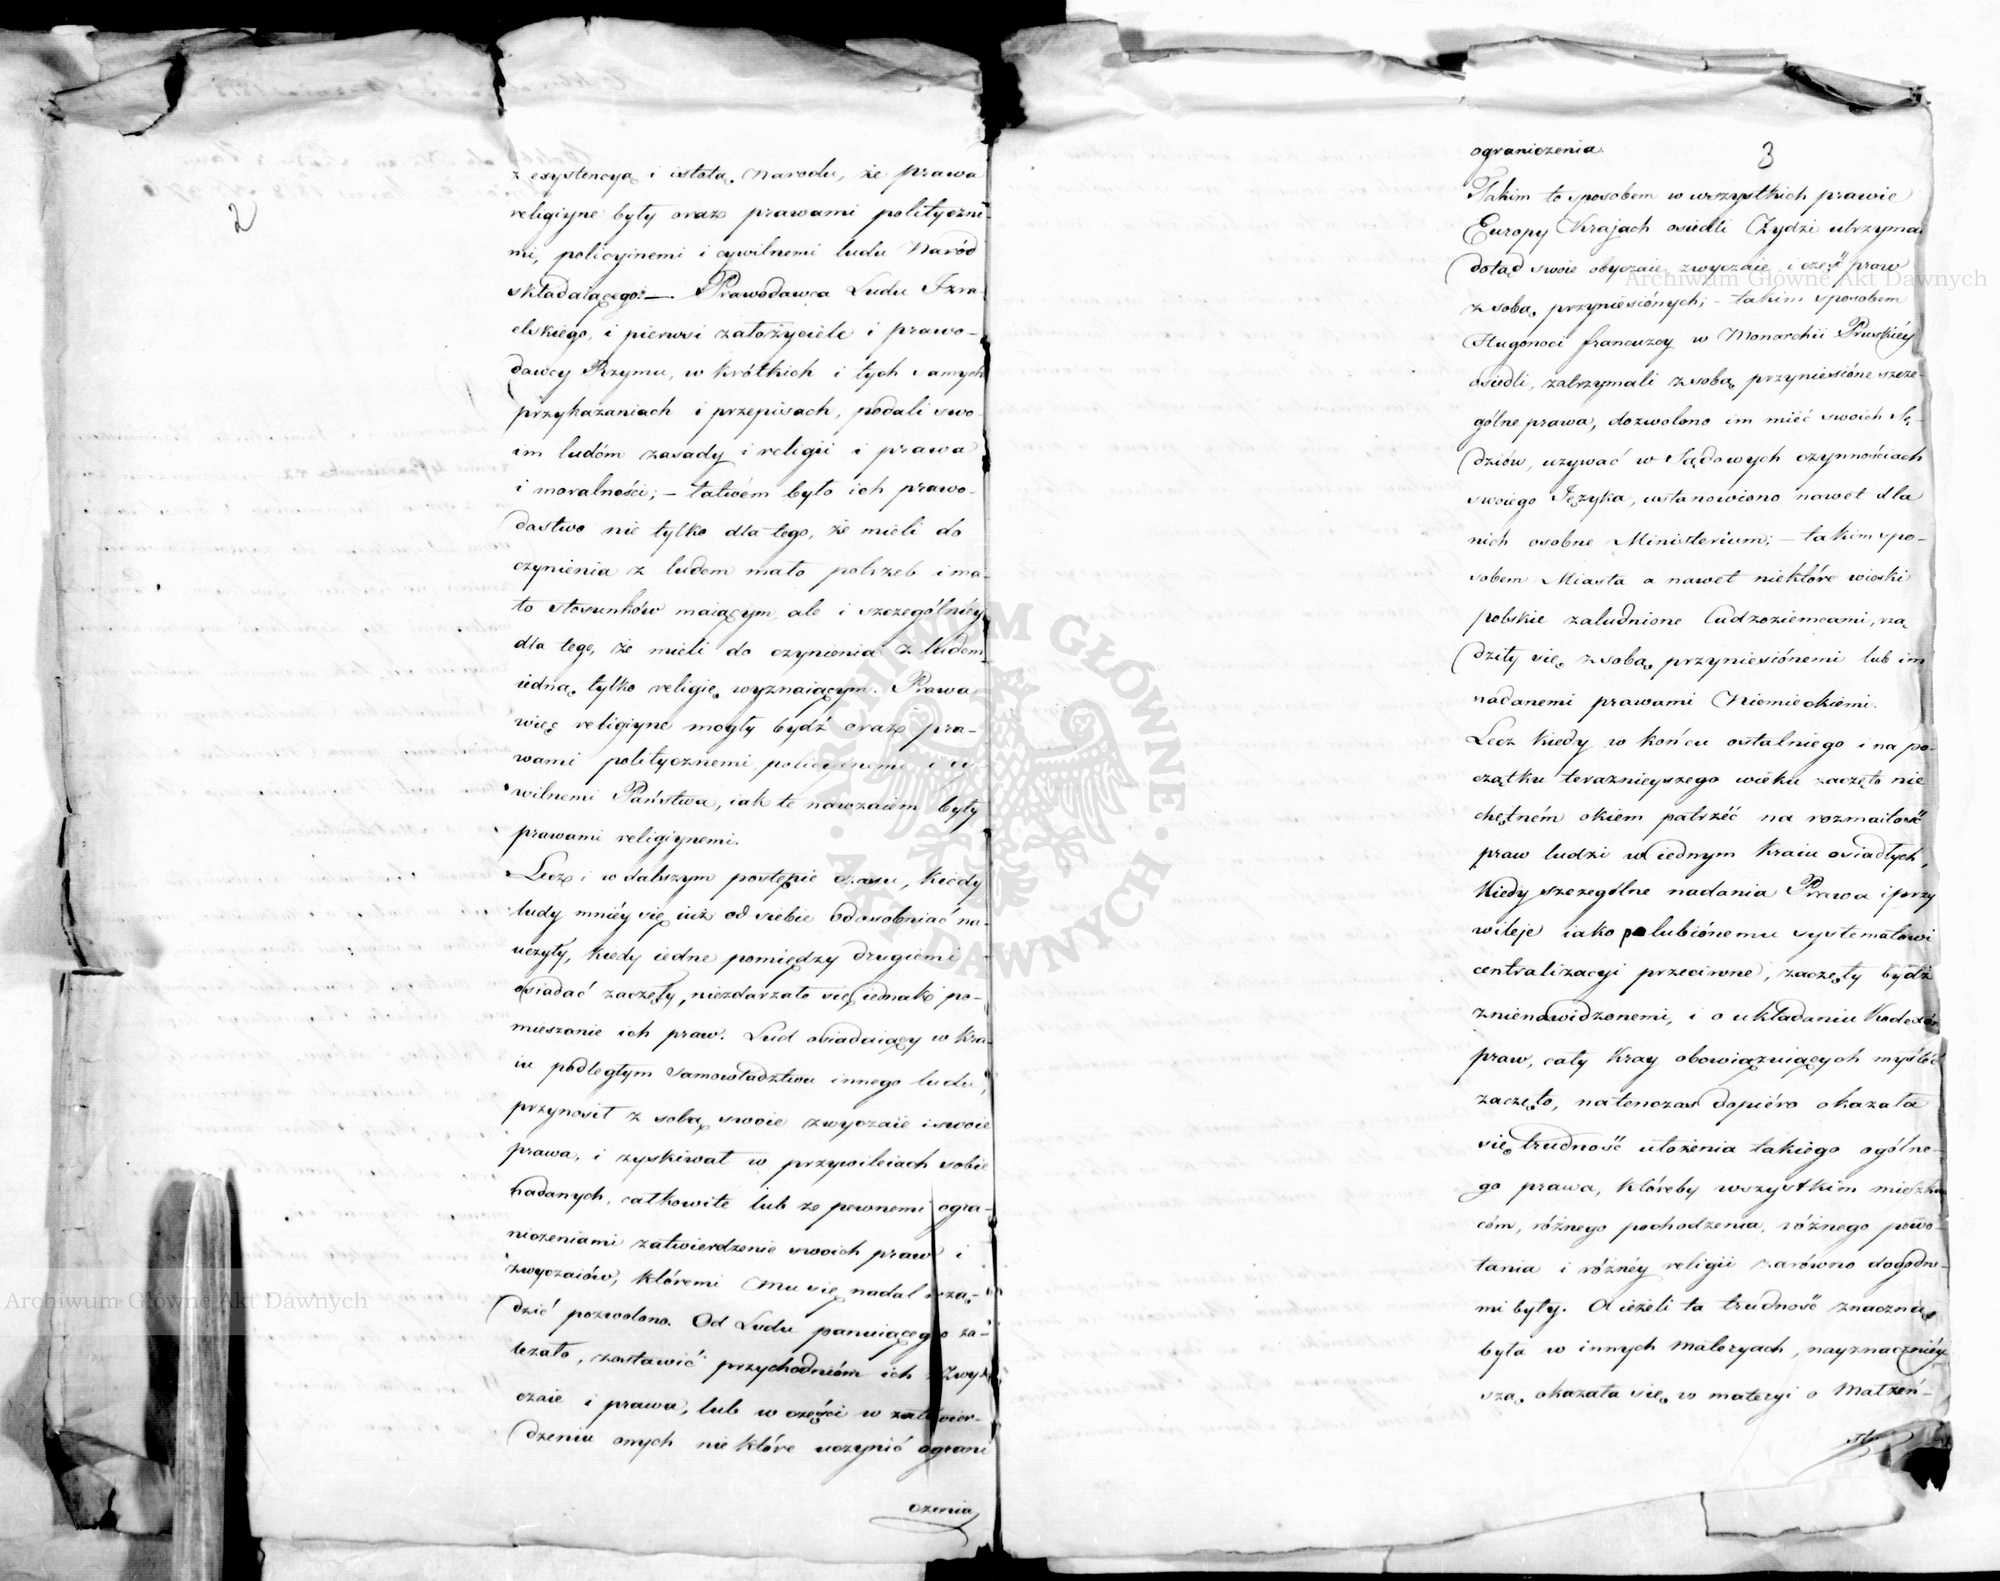 2
z exystencyą i istotą Narodu, że prawa
religiyne były oraz prawami polityczne-
mi, policyinemi i cywilnemi ludu Naród
składaiącego. — Prawodawca Ludu Izra-
elskiego, i pierwsi założyciele i prawo-
dawcy Rzymu, w krótkich i tych samych
przykazaniach i przepisach, podali swo-
im ludóm zasady i religii i prawa
i moralności; — łatwém było ich prawo-
dastwo nie tylko dla tego, że mieli do
czynienia z ludem mało potrzeb i ma-
ło stosunków maiącym, ale i szczególniéy
dla tego, że mieli do czynienia z ludem
iedną tylko religię wyznaiącym. Prawa
więc religiyne mogły bydź oraz pra-
wami politycznemi, policyinemi i cy-
wilnemi Państwa, iak te nawzaiem były
prawami religiynemi.
Lecz i w dalszym postępie czasu, kiedy
ludy mniéy się iuż od siebie odosobniać na-
uczyły, kiedy iedne pomiędzy drugiemi
osiadać zaczęły, niezdarzało się iednak po-
mieszanie ich praw. Lud osiadaiący w kra-
iu podległym samowładztwu innego ludu,
przynosił z sobą swoie zwyczaie i swoie
prawa, i zyskiwał w przywileiach sobie
nadanych, całkowite lub ze pewnemi ogra-
niczeniami zatwierdzenie swoich praw i
zwyczaiów, któremi mu się nadal rzą-
dzić pozwolono. Od Ludu panuiącego za-
leżało, zostawić przychodnióm ich zwy-
czaie i prawa, lub w części w zatwier-
dzeniu onych niektóre uczynić ograni
czenia
3
ograniczenia
Takim to sposobem w wszystkich prawie
Europy Krajach osiedli Żydzi utrzyma
dotąd swoie obyczaie, zwyczaie i część praw
z sobą przyniesiónych; — takim sposobem
Hugonoci francuzcy w Monarchii Pruskiéy
osiedli, zatrzymali z sobą przyniesióne szcze-
gólne prawa, dozwolono im mieć swoich Sę-
dziów, używać w Sądowych czynnościach
swoiego Języka, ustanowiono nawet dla
nich osobne Ministerium; — takim spo-
sobem Miasta a nawet niektóre wioski
polskie zaludnione Cudzoziemcami, rzą
dziły się z sobą przyniesiónemi lub im
nadanemi prawami Niemieckiemi.
Lecz kiedy w końcu ostatniego i na po-
czątku teraznieyszego wieku zaczęto nie
chętném okiem patrzéć na rozmaitość
praw ludzi w iednym kraiu osiadłych,
kiedy szczególne nadania Prawa i przy
wileje iako polubiónemu systematowi
centralizacyi przeciwne, zaczęły bydź
znienawidzonemi, i o układaniu Kodexów
praw, cały Kray obowiązuiących myśléć
zaczęto, natenczas dopiéro okazała
się trudność ułożenia takiego ogólne-
go prawa, któreby wszystkim mieszkań
cóm, różnego pochodzenia, różnego powo-
łania i różnéy religii zarówno dogodne-
mi były. A ieżeli ta trudność znaczną
była w innych materyach, nayznaczniéy
szą okazała się w materyi o Małżeń-
Archiwum Główne Akt Dawnych
Archiwum Główne Akt Dawnych
ARCHIWUM GŁÓWNE · AKT DAWNYCH ·